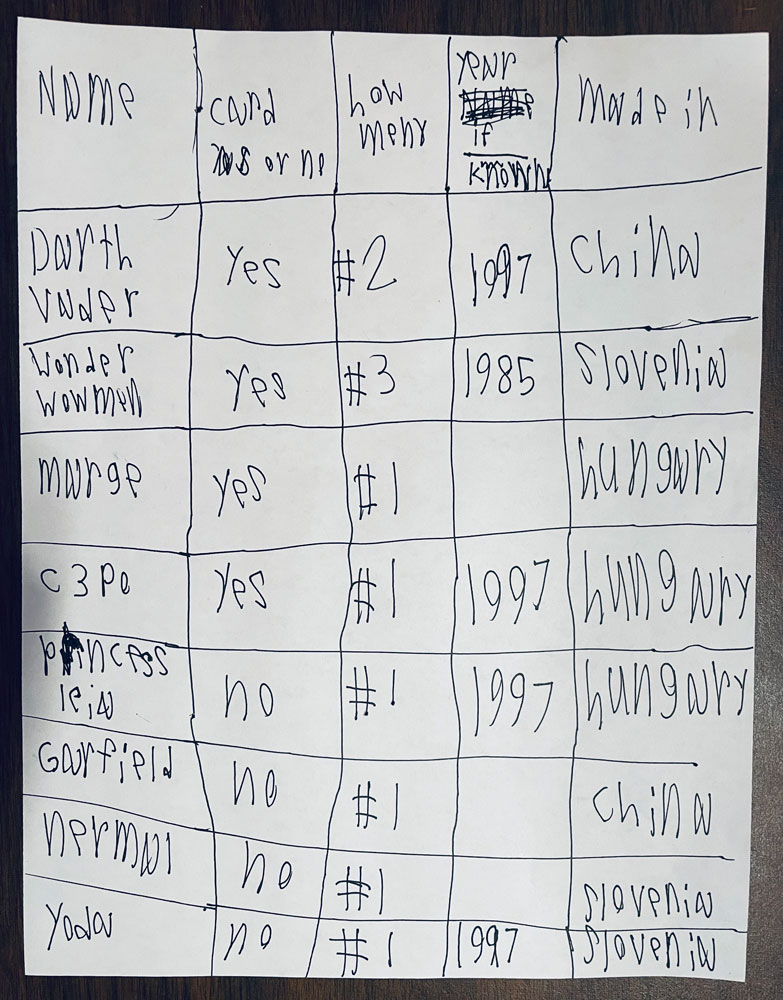 Name
card
yes or no
how
meny
year
if
known
made in
Darth
Vader
Yes
#2
1997
China
Wonder
wowmen
Yes
#3
1985
Slovenia
marge
yes
#1
hungary
C3Po
Yes
#1
1997
hungary
princess
leia
no
#1
1997
hungary
Garfield
no
#1
China
nermal
no
#1
slovenia
Yoda
no
#1
1997
Slovenia